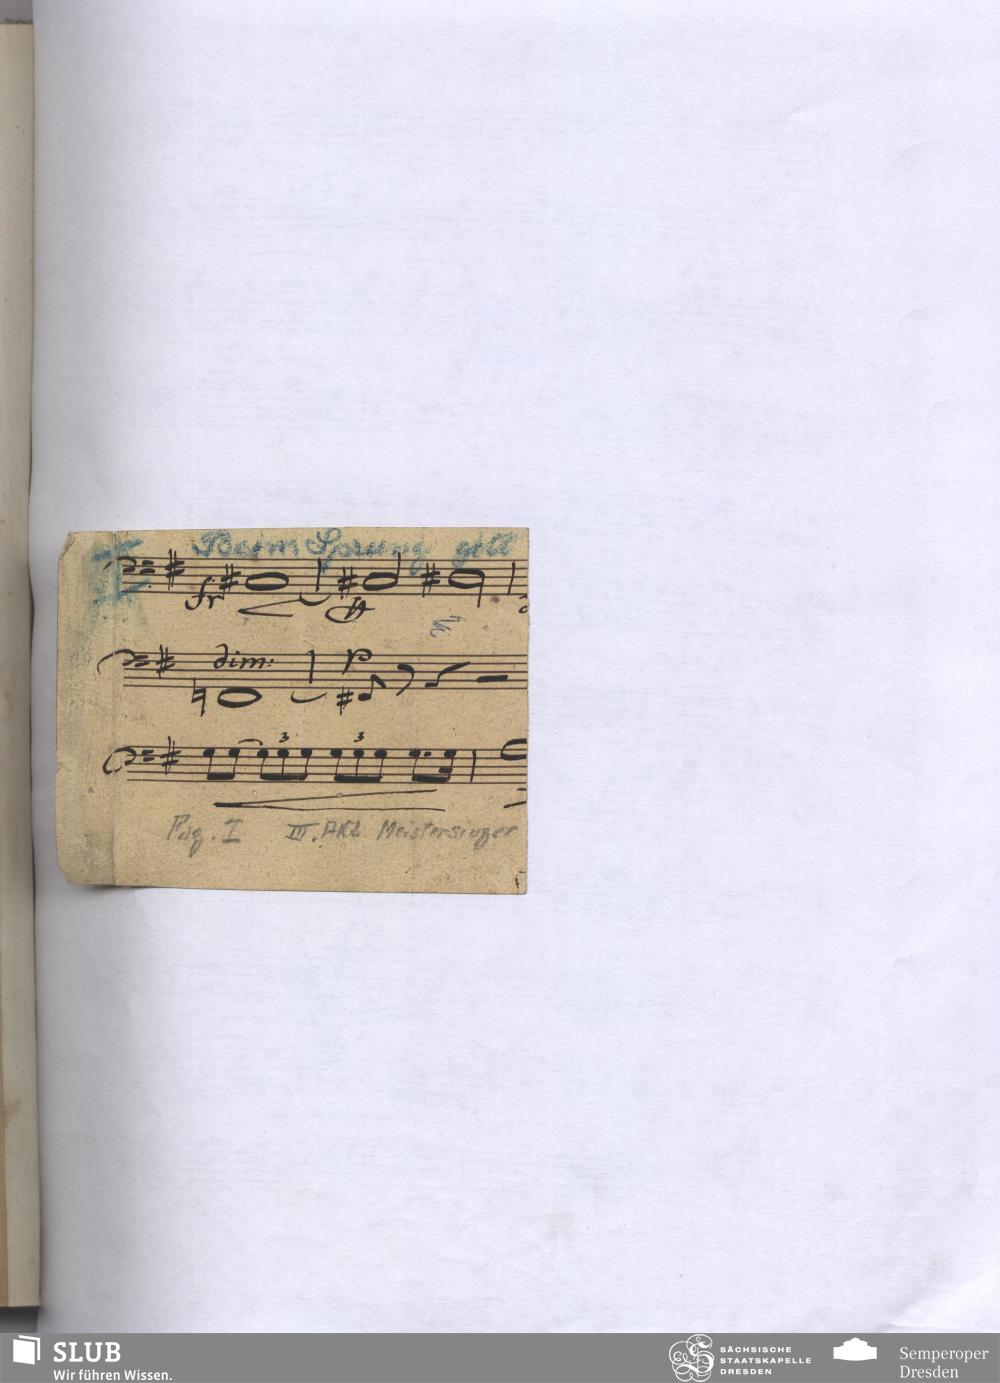 Beim Sprung gilt
dim: p
3 3
Pag. I III. Akt Meistersinger
SLUB
Wir führen Wissen.
SÄCHSISCHE
STAATSKAPELLE
DRESDEN
Semperoper
Dresden